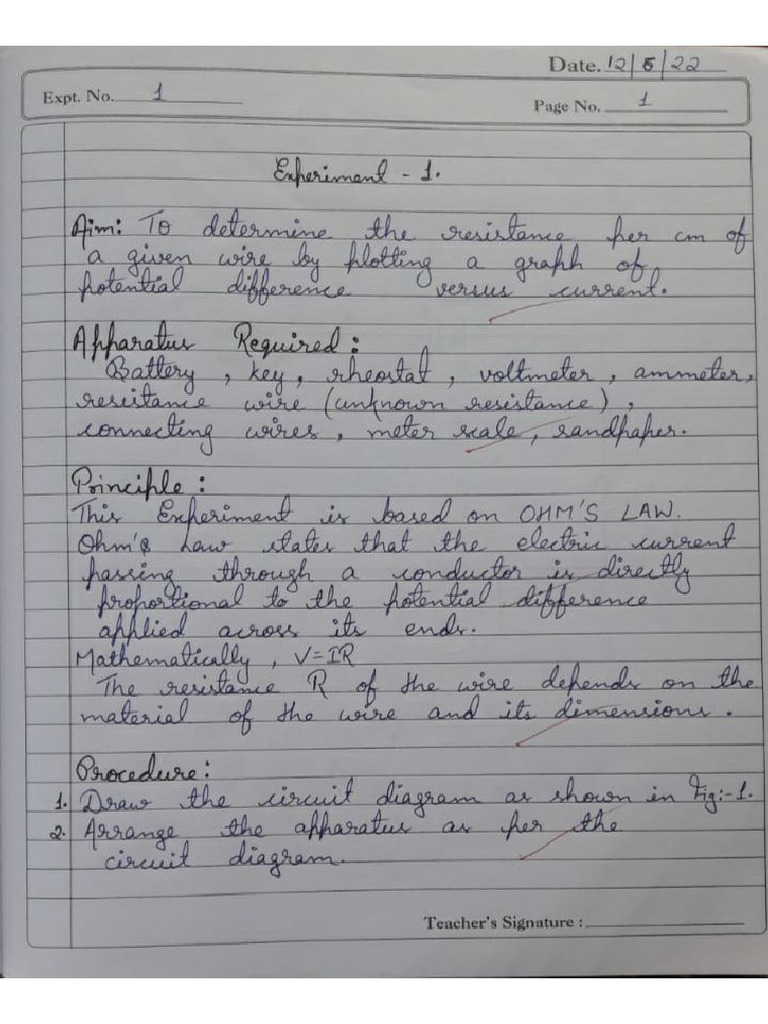 Date. 12/5/22
Expt. No. 1
Page No. 1
Experiment - 1.
Aim: To determine the resistance per cm of
a given wire by plotting a graph of
potential difference versus current.
Apparatus Required:
Battery, key, rheostat, voltmeter, ammeter,
resistance wire (unknown resistance),
connecting wires, meter scale, sandpaper.
Principle:
This Experiment is based on OHM'S LAW.
Ohm's Law states that the electric current
passing through a conductor is directly
proportional to the potential difference
applied across its ends.
Mathematically, V=IR
The resistance R of the wire depends on the
material of the wire and its dimensions.
Procedure:
1. Draw the circuit diagram as shown in Fig:-1.
2. Arrange the apparatus as per the
circuit diagram.
Teacher's Signature :